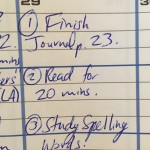 29
① Finish
Journal p. 23.
② Read for
20 mins.
③ Study Spelling
Words!